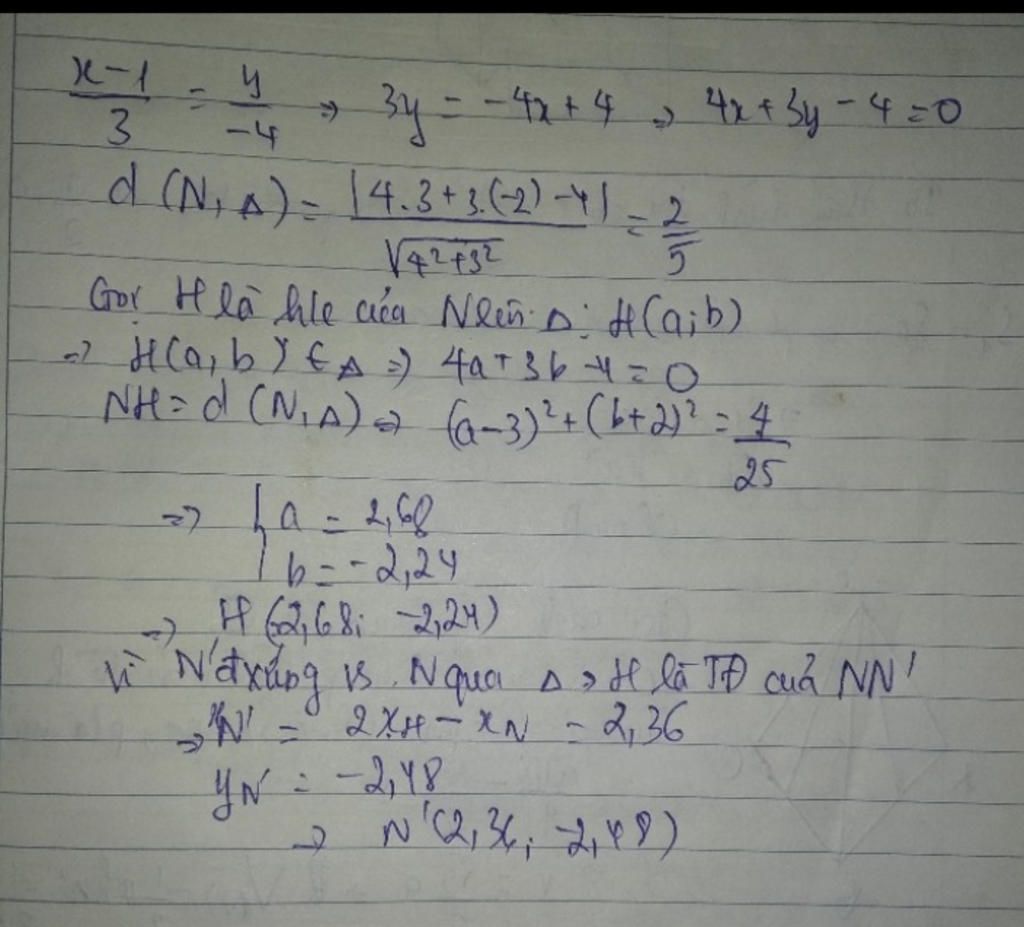 x-1/3 = y/-4 => 3y = -4x + 4 => 4x + 3y - 4 = 0
d (N, Δ) = |4.3 + 3.(-2) - 4| / √4²+3² = 2/5
Gọi H là hlc của N lên Δ: H(a;b)
=> H(a,b) ∈ Δ => 4a + 3b - 4 = 0
NH = d (N, Δ) => (a-3)² + (b+2)² = 4/25
=> { a = 2,68
b = -2,24
=> H (2,68; -2,24)
Vì N' đxứng vs N qua Δ => H là TĐ của NN'
=> xN' = 2xH - xN = 2,36
yN' = -2,48
=> N'(2,36; -2,48)